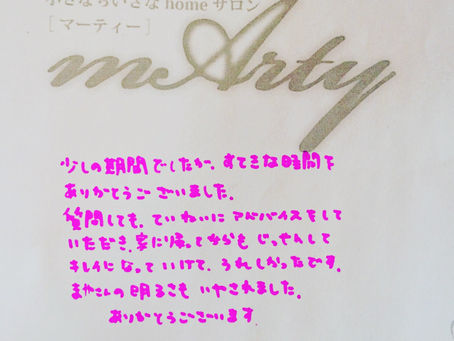 小さなちいさなhomeサロン
[マーティー]
mArty
少しの期間でしたが、すてきな時間を
ありがとうございました。
質問しても、ていねいにアドバイスをして
いただき、家に帰ってからも じっせんして
キレイになっていけて、うれしかったです。
まやさんの明るさも いやされました。
ありがとうございます